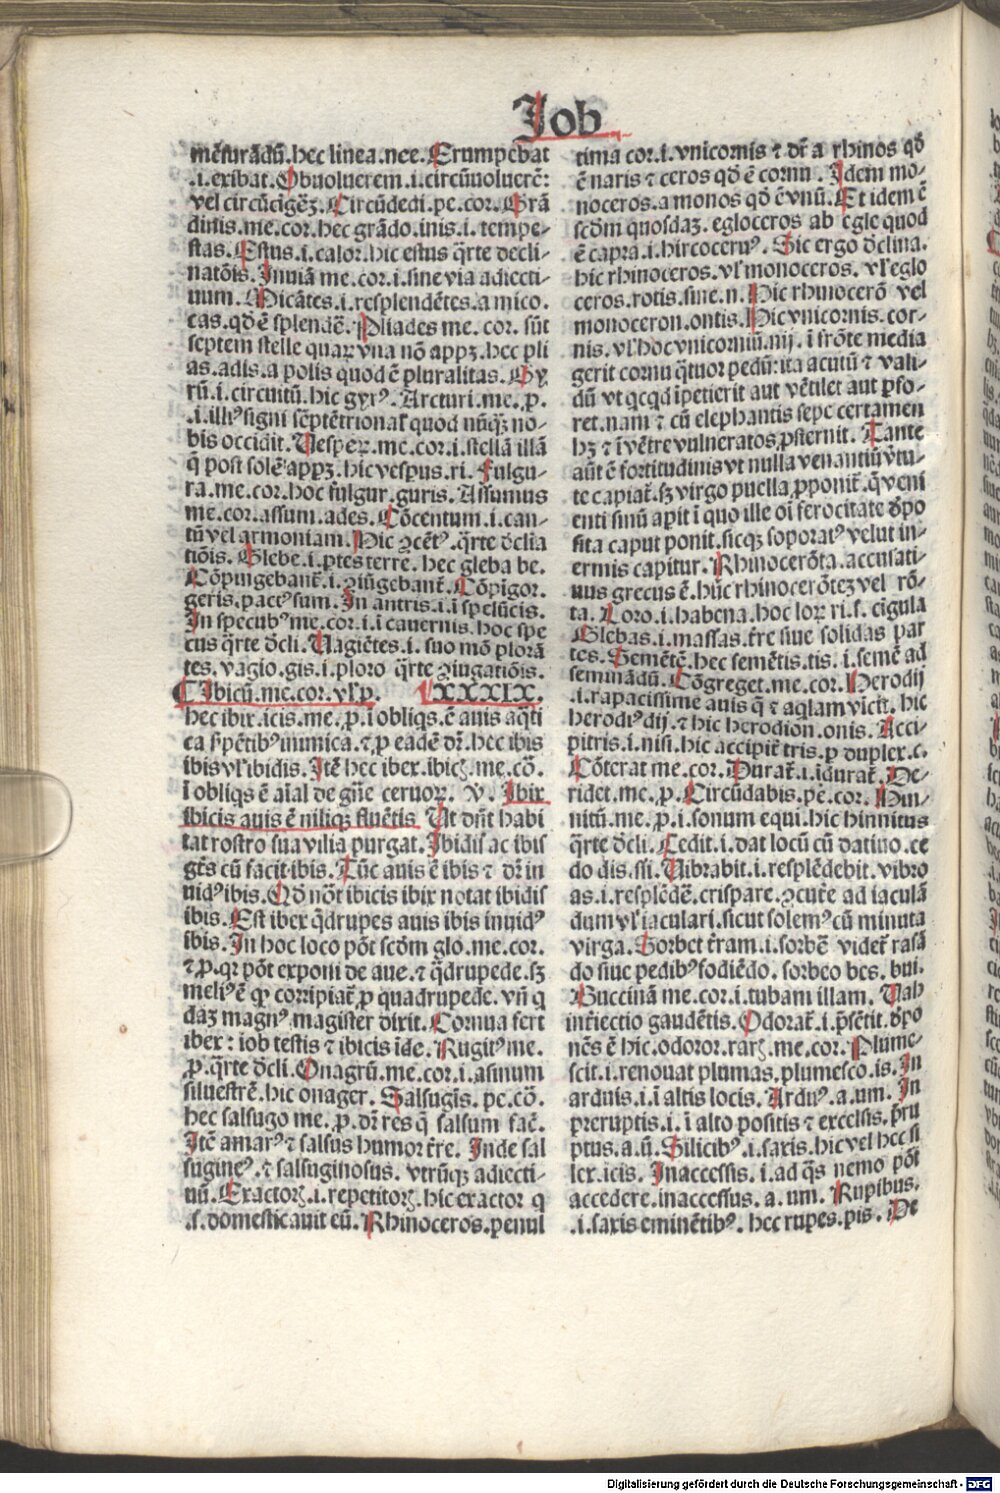 Job
mẽſurãdũ.hec linea.nee. Erumpebat
.i.exibat. Obuoluerem.i.circũuoluerẽ:
vel circũcigẽꝫ. Circũdedi.pe.cor. Grã
dinis.me.cor.hec grãdo.inis.i. tempe-
ſtas. Eſtus.i.calor.hic eſtus q̃rte decli-
natõis. Inuiã me.cor.i.ſine via adiecti-
uum. Micãtes.i.reſplendẽtes.a mico.
cas.qd̃ ẽ ſplendẽ. Pliades me. cor. ſũt
ſeptem ſtelle quaꝝ vna nõ appꝫ.hec pli
as.adis.a polis quod ẽ pluralitas. Gy
rũ.i.circuitũ.hic gyrꝰ. Arcturi.me.ꝓ.
.i.illiꝰ ſigni ſeptẽtrional̃ quod nũqꝫ no-
bis occidit. Veſpeꝝ.me.cor.i.ſtellã illã
q̃ poſt ſolẽ appꝫ.hic veſpus.ri. Fulgu-
ra.me.cor.hoc fulgur.guris. Aſſumus
me.cor.aſſum.ades. Cõcentum.i.can-
tũ vel armoniam. Hic ꝯcẽtꝰ.q̃rte d̃clia
tiõis. Glebe.i.ꝑtes terre. hec gleba be.
Cõpingebant̃.i.ꝯiũgebant̃. Cõpĩgor.
geris.pactꝰ ſum. In antris.i.ĩ ſpelũcis.
In ſpecubꝰ me.cor.i.ĩ cauernis.hoc ſpe
cus q̃rte d̃cli. Vagiẽtes.i. ſuo mõ plorã
tes. vagio.gis.i.ploro q̃rte ꝯiugatiõis.
¶ Ibicũ.me.cor.vl̃ ꝓ. XXXIX.
hec ibix.icis.me.ꝓ.i obliqs.ẽ auis aq̃ti
ca ſ̃pẽtibꝰ inimica.⁊ ꝓ eadẽ dr̃.hec ibis
ibis vl̃ ibidis. Itẽ hec ibex.ibicꝭ.me.cõ.
ĩ obliqs ẽ aĩal de gñe ceruoꝝ. v̾. Ibix
ibicis auis ẽ niliqꝫ fluẽtis. Ut dñt habi
tat roſtro ſua vilia purgat. Ibidiſ ac ibiſ
gt̃s cũ facit ibis. Tũc auis ẽ ibis ⁊ dr̃ in
uidꝰ ibis. Qd̃ nõt ibicis ibix notat ibidiſ
ibis. Eſt ibex q̃drupes auis ibis inuidꝰ
ibis. In hoc loco põt ſcd̃m glo.me.cor.
⁊ ꝓ.qꝛ põt exponi de aue.⁊ q̃drupede.ſꝫ
meliꝰ ẽ ꝙ corripiat̃ ꝓ quadrupede. vñ q
daꝫ magnꝰ magiſter dixit. Cornua fert
ibex: iob teſtis ⁊ ibicis ĩde. Rugitꝰ me.
ꝓ.q̃rte d̃cli. Onagrũ.me.cor.i.aſinum
ſilueſtrẽ.hic onager. Salſugis. pe.cõ.
hec ſalſugo me.ꝓ.dr̃ res q̃ ſalſum fac̃.
Itẽ amarꝰ ⁊ ſalſus humor t̃re. Inde ſal
ſugineꝰ.⁊ ſalſuginoſus. vtrũqꝫ adiecti-
uũ. Exactorꝭ.i.repetitorꝭ.hic exactor q
.ſ.domeſticauit eũ. Rhinoceros.penul
tima cor.i.vnicornis ⁊ dr̃ a rhinos qd̃
ẽ naris ⁊ ceros qd̃ ẽ cornu. Idem mo-
noceros.a monos qd̃ ẽ vnũ. Et idem ẽ
ſcd̃m quoſdaꝫ.egloceros ab egle quod
ẽ capra.i.hircoceruꝰ. Sic ergo d̃clina.
hic rhinoceros.vl̃ monoceros. vl̃ eglo
ceros.rotis.ſine.n. Hic rhinocerõ vel
monoceron.ontis. Hic vnicornis.cor-
nis.vl̃ hoc vnicorniũ.nij.ĩ frõte media
gerit cornu q̃tuor pedũ:ita acutũ ⁊ vali-
dũ vt qcqd ĩpetierit aut vẽtilet aut ꝑfo-
ret.nam ⁊ cũ elephantis ſepe certamen
hꝫ ⁊ ĩ vẽtre vulneratos ꝓſternit. Tante
aũt ẽ fortitudinis vt nulla venantiũ v̾tu-
te capiat̃.ſꝫ virgo puella ꝓponit̃.q̃ veni
enti ſinũ apit ĩ quo ille oĩ ferocitate d̾po
ſita caput ponit.ſicqꝫ ſoporatꝰ velut in-
ermis capitur. Rhinocerõta.accuſati-
uus grecus ẽ.hũc rhinocerõteꝫ vel rõ-
ta. Loro.i.habena.hoc loꝝ ri.ſ. cĩgula
Glebas.i.maſſas.t̃re ſiue ſolidas par
tes. Semẽtẽ.hec ſemẽtis.tis. i.ſemẽ ad
ſeminãdũ. Cõgreget.me.cor. Herodij
.i.rapaciſſime auis q̃ ⁊ aq̃lam vicit̃. hic
herodiꝰ dij.⁊ hic herodion.onis. Acci-
pitris.i.niſi.hic accipit̃ tris.ꝓ duplex.c.
Cõterat me.cor. Durat̃.i.ĩdurat̃. De-
ridet.me.ꝓ. Circũdabis.pe.cor. Hin-
nitũ.me.ꝓ.i.ſonum equi.hic hinnitus
q̃rte d̃cli. Cedit.i.dat locũ cũ datiuo.ce
do dis.ſſi. Vibrabit.i.reſplẽdebit.vibro
as.i.reſplẽdẽ.criſpare.ꝯcut̃e ad iaculã
dum vl̃ iaculari.ſicut ſolemꝰ cũ minuta
virga. Sorbet t̃ram.i.ſorbẽ videt̃ raſã
do ſiue pedibꝰ fodiẽdo. ſorbeo bes. bui.
Buccinã me.cor.i.tubam illam. Vah
int̃iectio gaudẽtis. Odorat̃.i.p̃ſẽtit.d̾po
nẽs ẽ hic.odoror.rarꝭ.me.cor. Plume-
ſcit.i.renouat plumas.plumeſco.is. In
arduis.i.ĩ altis locis. Arduꝰ.a.um. In
preruptis.i.ĩ alto poſitis ⁊ excelſis.p̃ru
ptus.a.ũ. Silicibꝰ.i.ſaxis.hic vel hec ſi
lex.icis. Inacceſſis.i.ad q̃s nemo põt
accedere.inacceſſus.a.um. Rupibus.
.i.ſaxis eminẽtibꝰ. hec rupes.pis. De
Digitalisierung gefördert durch die Deutsche Forschungsgemeinschaft - DFG